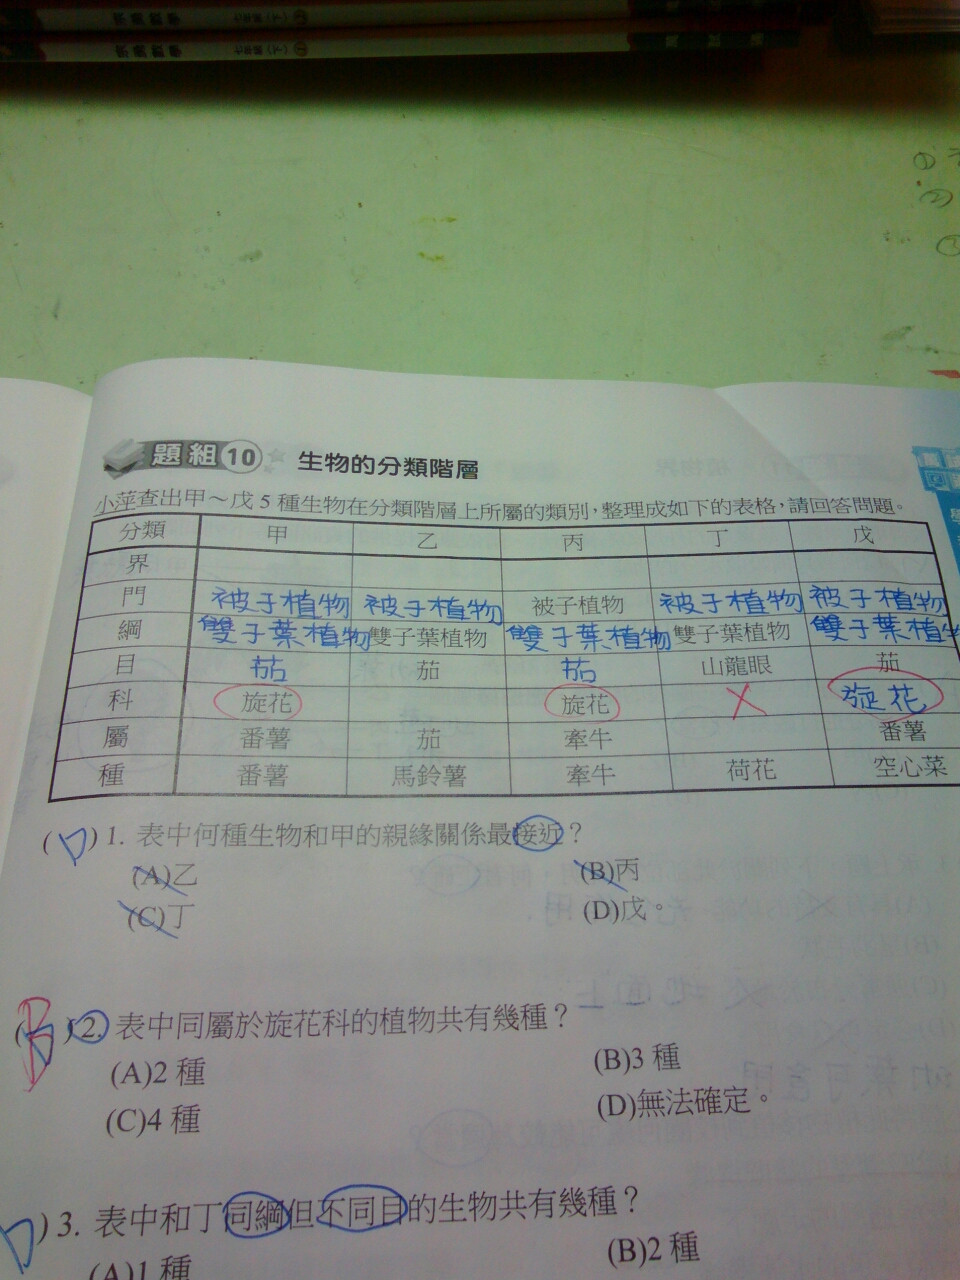 ①
②
③
題組10 生物的分類階層
小萍查出甲～戊5種生物在分類階層上所屬的類別，整理成如下的表格，請回答問題。
分類 甲 乙 丙 丁 戊
界
門 被子植物 被子植物 被子植物 被子植物 被子植物
綱 雙子葉植物 雙子葉植物 雙子葉植物 雙子葉植物 雙子葉植
目 茄 茄 茄 山龍眼 茄
科 旋花 旋花 X 旋花
屬 番薯 茄 牽牛 番薯
種 番薯 馬鈴薯 牽牛 荷花 空心菜
(D) 1. 表中何種生物和甲的親緣關係最接近？
(A)乙 (B)丙
(C)丁 (D)戊。
(B) 2. 表中同屬於旋花科的植物共有幾種？
(A)2種 (B)3種
(C)4種 (D)無法確定。
D) 3. 表中和丁同綱但不同目的生物共有幾種？
(A)1種 (B)2種